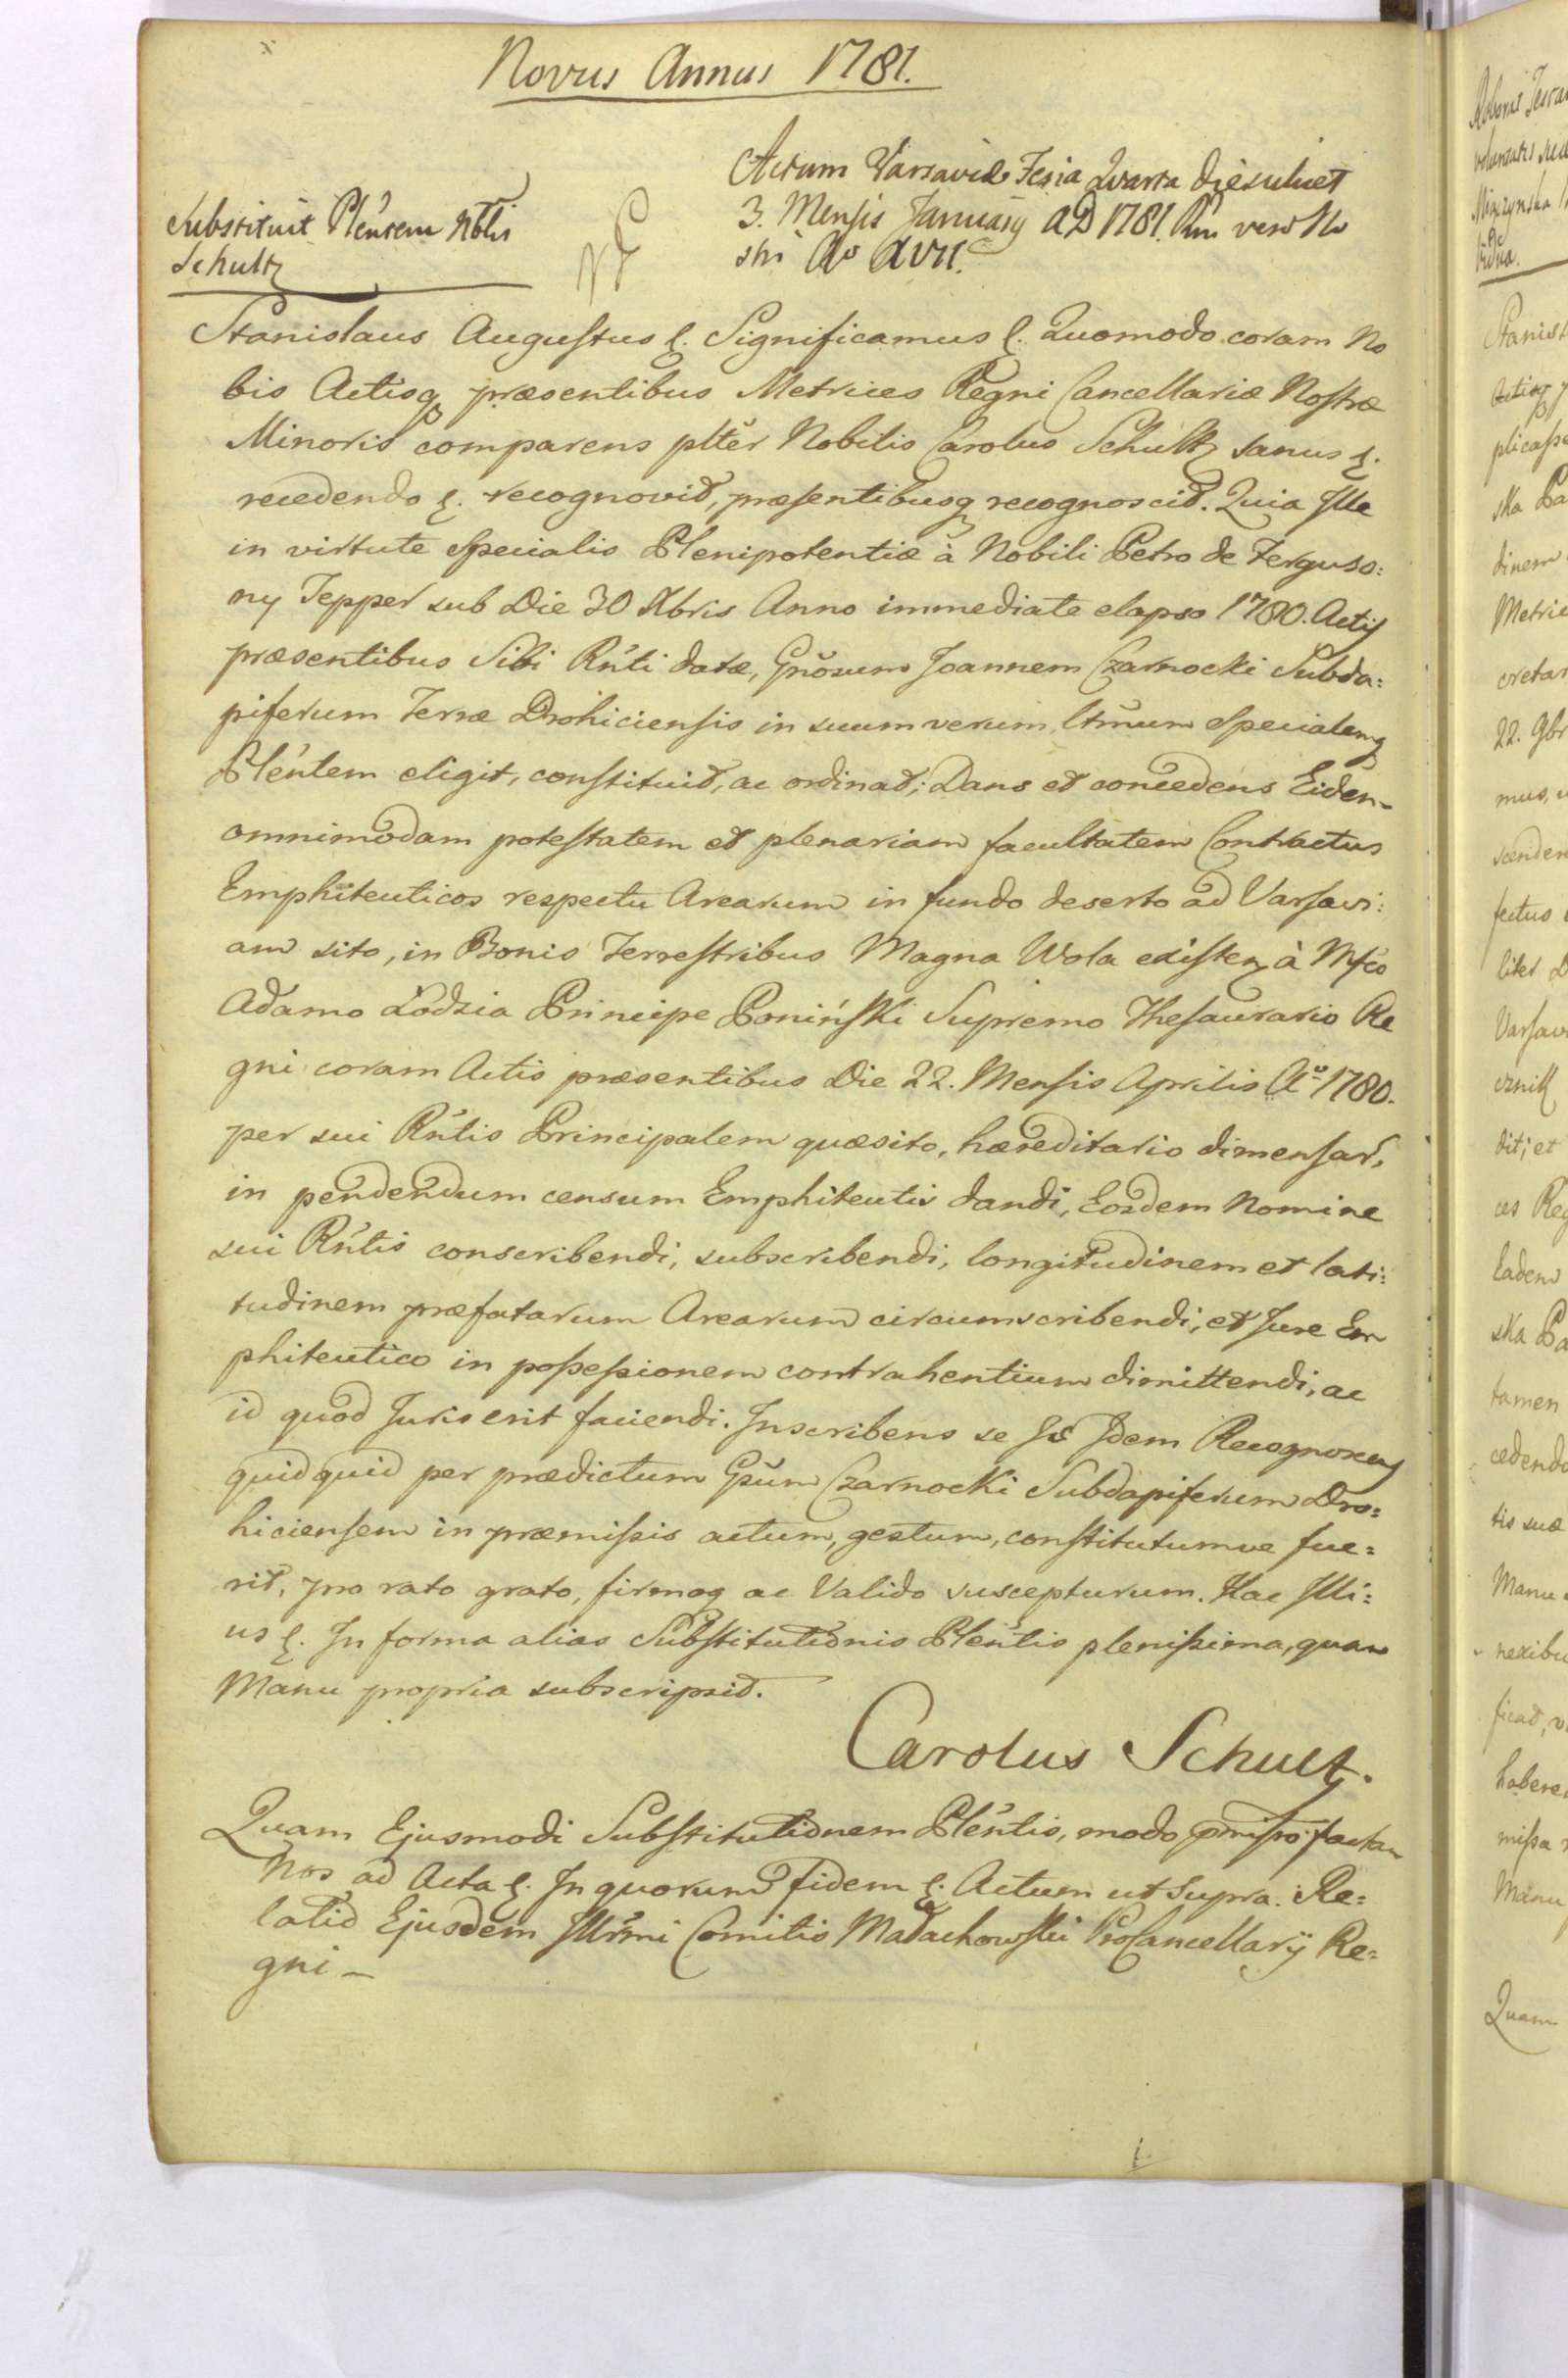 Novus Annus 1781.
Actum Varsaviæ Feria Qvarta die scilicet
3. Mensis Januarij AD 1781. Rni vero No
stri Ao XVII.
Substituit Plentem Nblis
Schultz
Stanislaus Augustus &. Significamus &. Quomodo coram No
bis Actisq præsentibus Metrices Regni Cancellariæ Nostræ
Minoris comparens plter Nobilis Carolus Schultz sanus &.
recedendo &. recognovit, præsentibusq recognoscit. Quia Ille
in virtute specialis Plenipotentiæ à Nobili Petro de Ferguso:
ny Tepper sub Die 30 Xbris Anno immediate elapso 1780. Actis
præsentibus Sibi Rnti datæ, Gnosum Joannem Czarnocki Subda:
piferum Terræ Drohiciensis in suum verum, ltmum specialemq
Plentem eligit, constituit, ac ordinat; Dans et concedens Eidem
omnimodam potestatem et plenariam facultatem Contractus
Emphiteuticos respectu Arearum in fundo deserto ad Varsavi:
am sito, in Bonis Terrestribus Magna Wola existen à Mfco
Adamo Łodzia Principe Poniński Supremo Thesaurario Re
gni coram Actis præsentibus Die 22. Mensis Aprilis Ao 1780.
per sui Rntis Principalem quæsito, hæreditario dimensar,
in pendendum censum Emphiteutis dandi, Eosdem Nomine
sui Rntis conscribendi, subscribendi, longitudinem et lati:
tudinem præfatarum Arearum circumscribendi, et Jure Em
phiteutico in possessionem contrahentium dimittendi, ac
id quod Juris erit faciendi. Inscribens se Idem Recognoscens
quidquid per prædictum Gsum Czarnocki Subdapiferum Dro:
hiciensem in præmissis actum, gestum, constitutumve fue:
rit, pro rato grato, firmoq ac Valido suscepturum. Hac Illi:
us &. In forma alias Substitutionis Plentis plenissima, quam
Manu propria subscripsit.
Carolus Schultz.
Quam Ejusmodi Substitutionem Plentis, modo pmisso factam
Nos ad Acta &. In quorum fidem &. Actum ut supra. Re:
latio Ejusdem Illrmi Comitis Małachowski ProCancellarij Re:
gni –